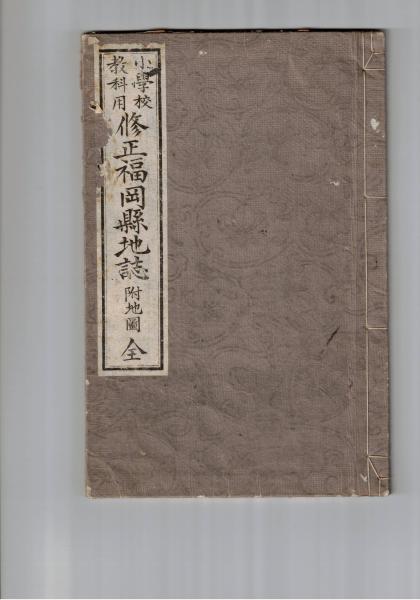 小學校
教科用
修正福岡縣地誌
附地圖
全